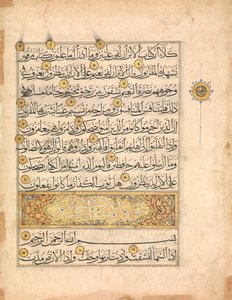 كلا إن كتاب الأبرار لفي عليين وما أدراك ما عليون كتاب مرقوم
يشهده المقربون إن الأبرار لفي نعيم على الأرائك ينظرون تعرف في
وجوههم نضرة النعيم يسقون من رحيق مختوم ختامه مسك وفي ذلك
فليتنافس المتنافسون ومزاجه من تسنيم عينا يشرب بها المقربون
إن الذين أجرموا كانوا من الذين آمنوا يضحكون وإذا مروا بهم يتغامزون
وإذا انقلبوا إلى أهلهم انقلبوا فكهين وإذا رأوهم قالوا إن هؤلاء
لضالون وما أرسلوا عليهم حافظين فاليوم الذين آمنوا من الكفار يضحكون
على الأرائك ينظرون هل ثوب الكفار ما كانوا يفعلون
بسم الله الرحمن الرحيم
إذا السماء انشقت وأذنت لربها وحقت وإذا الأرض مدت